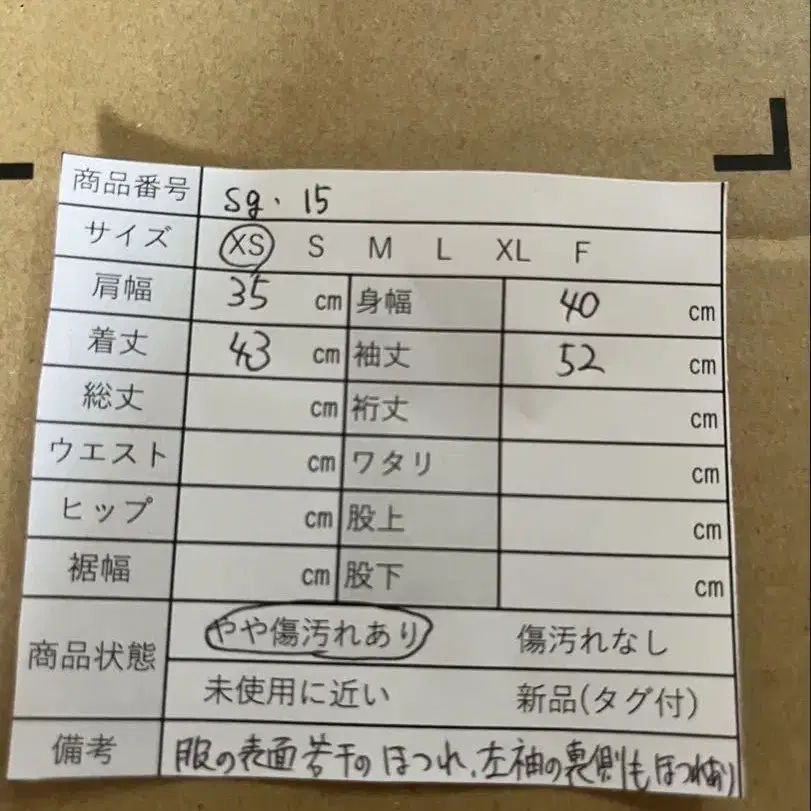 商品番号 sg. 15
サイズ XS S M L XL F
肩幅 35 cm 身幅 40 cm
着丈 43 cm 袖丈 52 cm
総丈 cm 裄丈 cm
ウエスト cm ワタリ cm
ヒップ cm 股上 cm
裾幅 cm 股下 cm
商品状態 やや傷汚れあり 傷汚れなし
未使用に近い 新品(タグ付)
備考 服の表面若干のほつれ、左袖の裏側もほつれあり